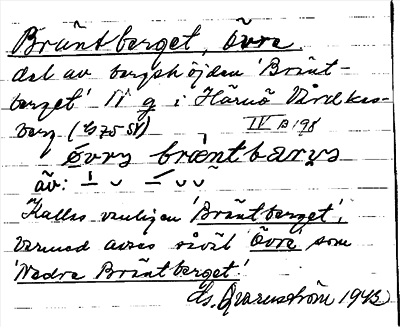 Bräntberget, Övre
del av bergshöjden 'Bränt-
berget' N g i Härnö Vårdkas-
berg (G 75 SV) IV B 198
øvrə bræntbærjə
äv:
Kallas vanligen 'Bräntberget',
varmed avses såväl 'Övre' som
'Nedre Bräntberget'.
ds. Qvarnström 1943